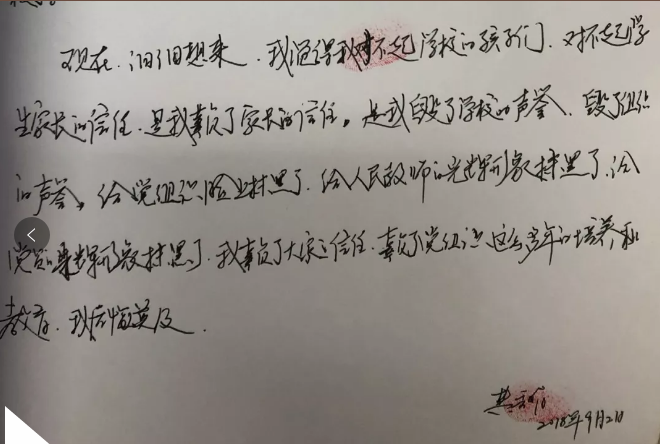 现在,泪泪想来,我觉得我对不起学校的孩子们,对不起学
生家长的信任,是我辜负了家长的信任。是我毁了学校的声誉,毁了组织
的声誉,给党组织脸上抹黑了,给人民教师的光辉形象抹黑了,给
党员的光辉形象抹黑了,我辜负了大家的信任,辜负了党组织这么多年的培养和
教育,我后悔莫及.
2018年9月2日